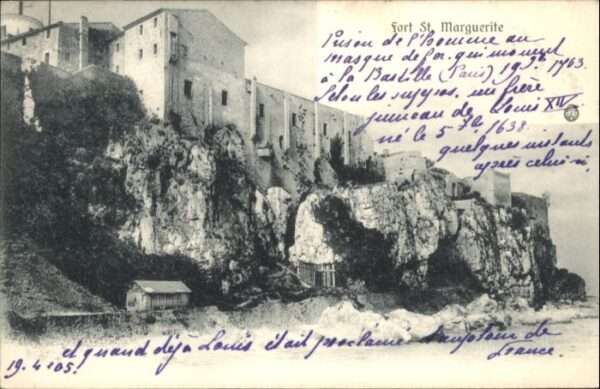 Fort St. Marguerite
Prison de l'homme au
masque de fer qui mourut
à la Bastille (Paris) 19 9bre 1703.
Selon les suppos. un frère
jumeau de Louis XIV
né le 5 7bre 1638
quelques instants
après celui-ci
et quand déjà Louis était proclamé Dauphin de
France.
19.4.05.